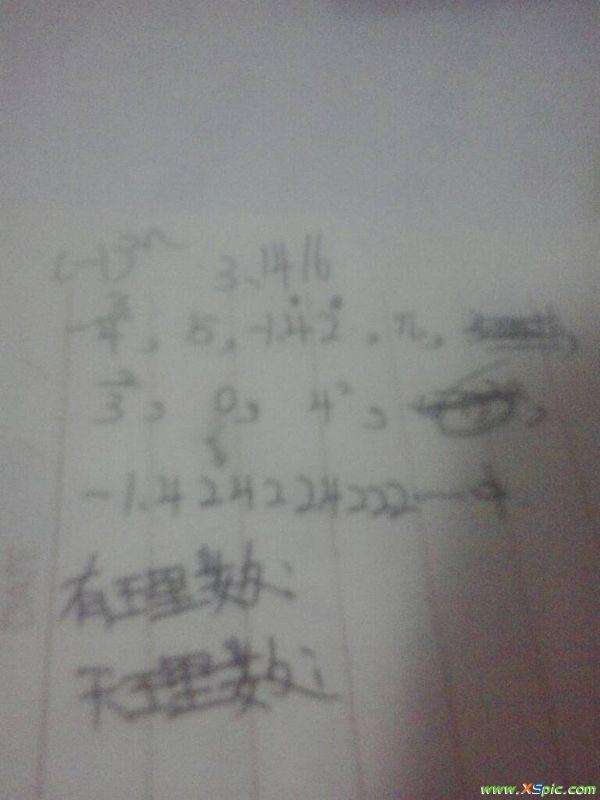 (-1)³ⁿ 3.1416
-3/4, 5, -1.4̇2̇, π,
2/3, 0, 4²,
-1.424224222……中
有理数:
无理数:
www.XSpic.com